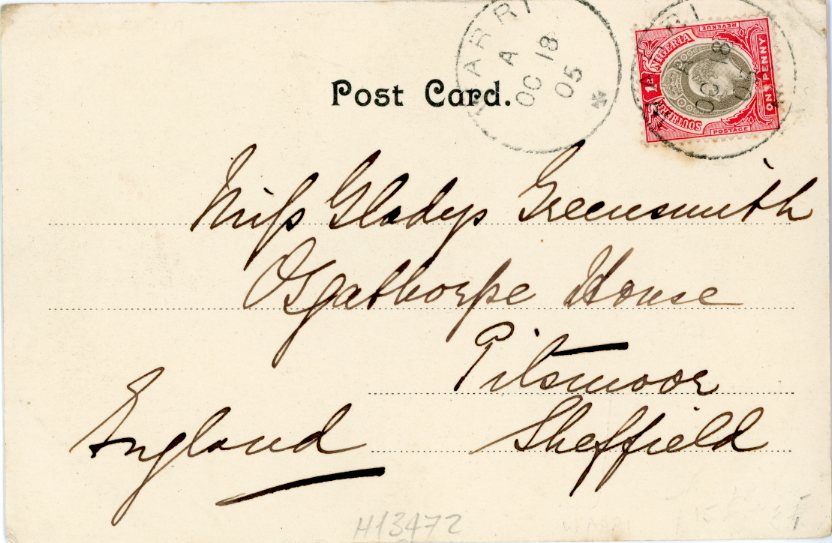 WARRI
A
OC 18
05
SOUTHERN NIGERIA
REVENUE
POSTAGE
1d
ONE PENNY
Post Card.
Miss Gladys Greensmith
Osgathorpe House
Pitsmoor
Sheffield
England
H13472